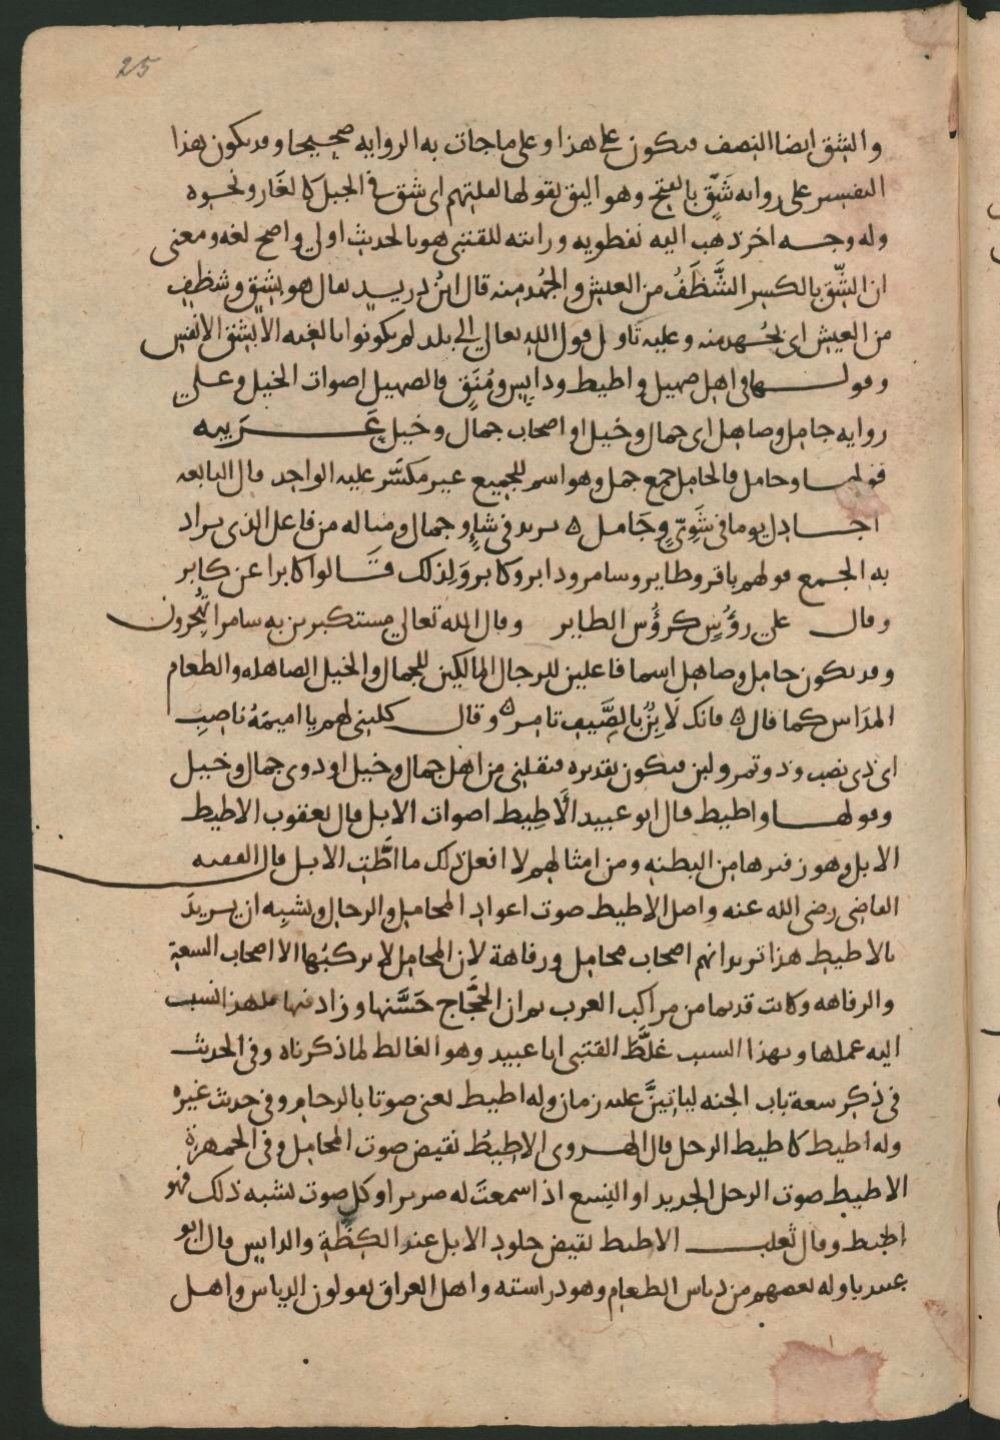 25
والشق ايضا النصف فيكون على هذا وعلى ما جات به الروايه صحيحا وقد يكون هذا
التفسير على روايه شَقّ بالفتح وهو اليق بقولها لقلتهم اى شق في الجبل كالغار ونحوه
وله وجه اخر ذهب اليه نفطويه ورايته للقتبى هو بالحديث اولى واصح لغه ومعنى
ان الشِّق بالكسر الشَّظَفُ من العيش والجُهد منه قال ابنُ دريد يقال هو بشق وشظف
من العيش اى بجُهد منه وعليه تَاول قول الله تعالى الى بلد لم تكونوا بالغيه الا بشق الانفس
وقولها في اهل صهيل واطيط ودايس ومُنَق فالصهيل اصوات الخيل وعلى
روايه جامل وصاهل اى جمال وخيل او اصحاب جمال وخيل عَرَبيه
قولها وجامل فالجامل جمع جمل وهو اسم للجميع غير مكسَّر عليه الواحد قال النابغه
يوما في شَوِىّ وجَامل ۞ يريد في شاءٍ وجمال ومثاله من فاعل الذى يراد
به الجمع قولهم باقر وطاير وسامر ودابر وكابر وَلِذلك قَالوا كابرا عن كابر
وقال على رؤُسٍ كرؤُس الطاير وقال الله تعالى مستكبرين به سامرا تُهْجِرون
وقد يكون جامل وصاهل اسما فاعلين للرجال المالكين للجمال والخيل الصاهله والطعام
المدَاس كما قال ۞ فانك لابِنٌ بالصَّيف تامر ۞ وقال كلينى لهم يا اميمَهُ ناصبِ
اى ذى نصب وذو تمر ولبن فيكون تقديره فنقلنى من اهل جمال وخيل او ذوى جمال وخيل
وقولها واطيط قال ابو عبيد الأَطِيط اصوات الابل قال يعقوب الاطيط
الابل وهو زفيرها من البطنه ومن امثالهم لا افعل ذلك ما اطَّتِ الابل قال الفقيه
القاضى رضى الله عنه واصل الاطيط صوت اعواد المحامل والرحال ويشبه ان يريدَ
بالاطيط هذا تريد انهم اصحاب محامل ورفاهة لان المحامل لا يركبُها الا اصحاب السعة
والرفاهه وكانت قديما من مراكب العرب ثم ان الحجَّاج حَسَّنها وزاد فيها فلهذا نسب
اليه عملها وبهذا السبب غلَّطَ القتبى ابا عبيد وهو الغالط لما ذكرناه وفي الحديث
في ذكر سعة باب الجنه لياتينَّ عليه زمان وله اطيط يعنى صوتا بالزحام وفي حديث غيره
وله اطيط كاطيط الرحل قال الهروى الاطِيطُ نقيض صوت المحامل وفي الجمهرة
الاطيط صوت الرحل الجديد او النِسع اذا سمعتَ له صريرا وكل صوت يشبه ذلك فهو
اطيط وقال ثعلب الاطيط نقيض جلود الابل عند الكِظَّةِ والدايس قال ابو
عبيد تاوله بعضهم من دياس الطعام وهو دراسته واهل العراق يقولون الدياس واهل